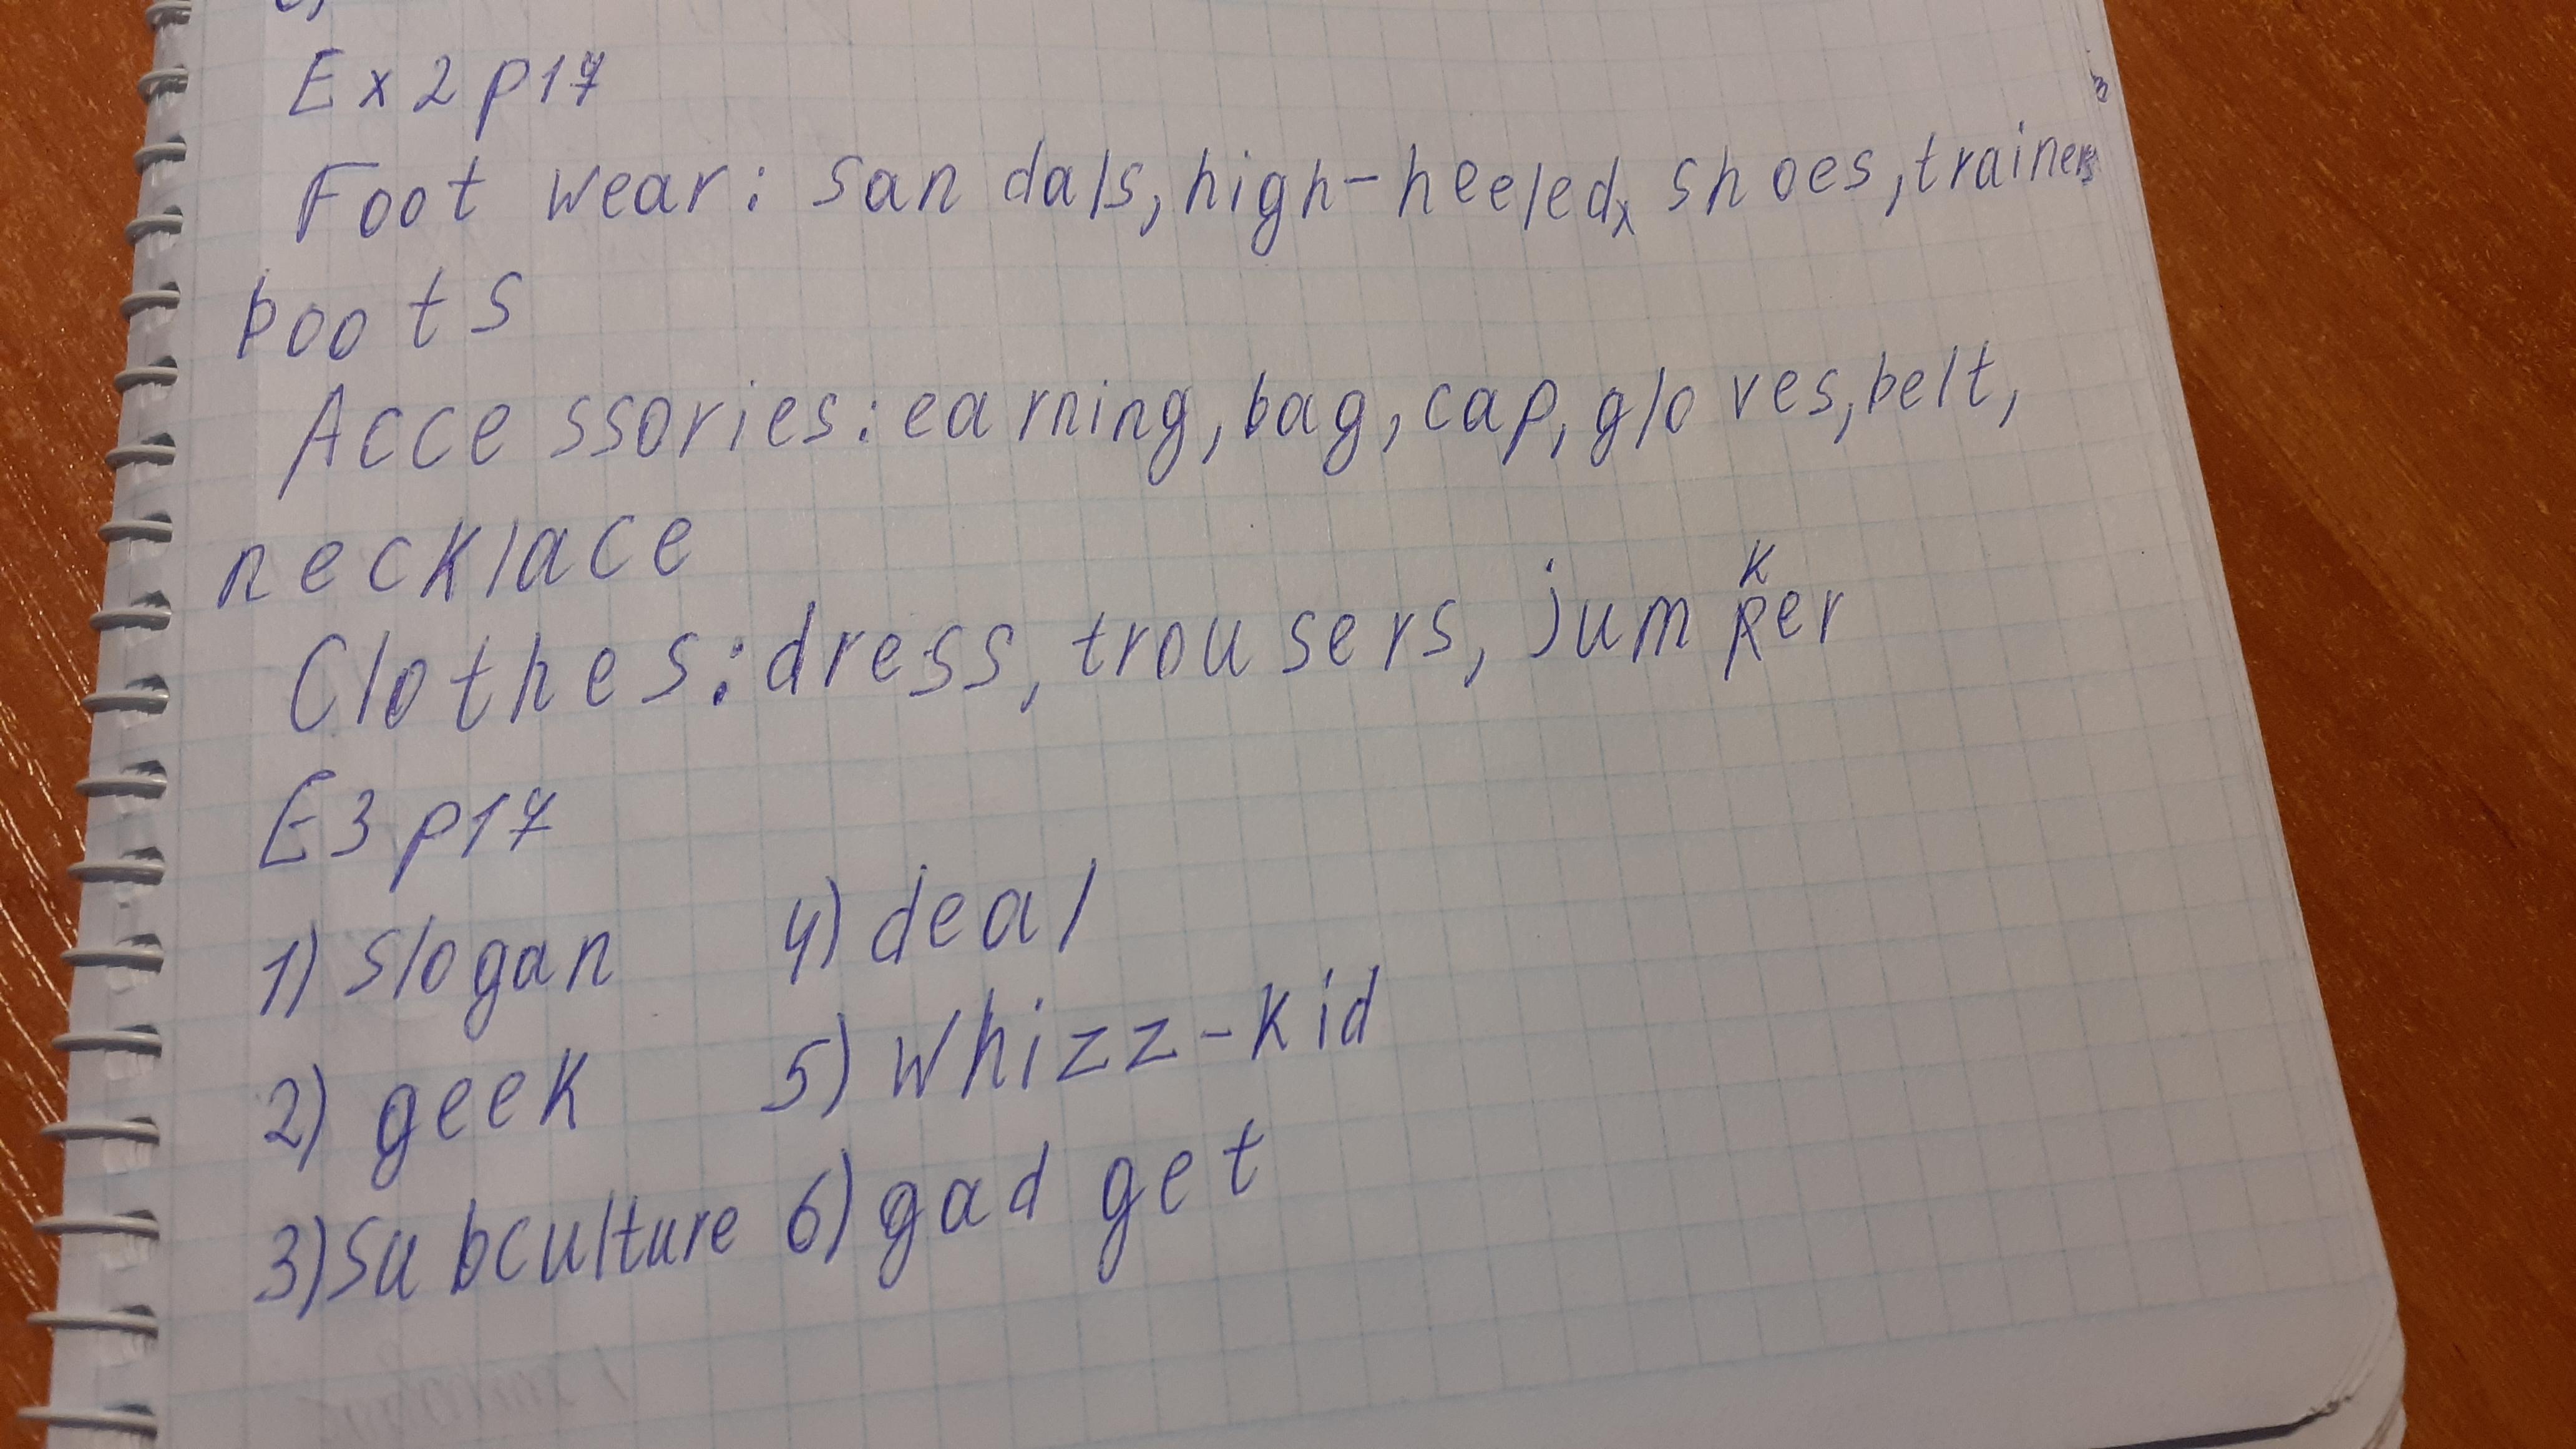 Ex 2 p17
Foot wear: sandals, high-heeled, shoes, trainers
boots
Accessories: earning, bag, cap, gloves, belt,
necklace
Clothes: dress, trousers, jumper
K
E3 p17
1) slogan 4) deal
2) geek 5) whizz-kid
3) subculture 6) gad get